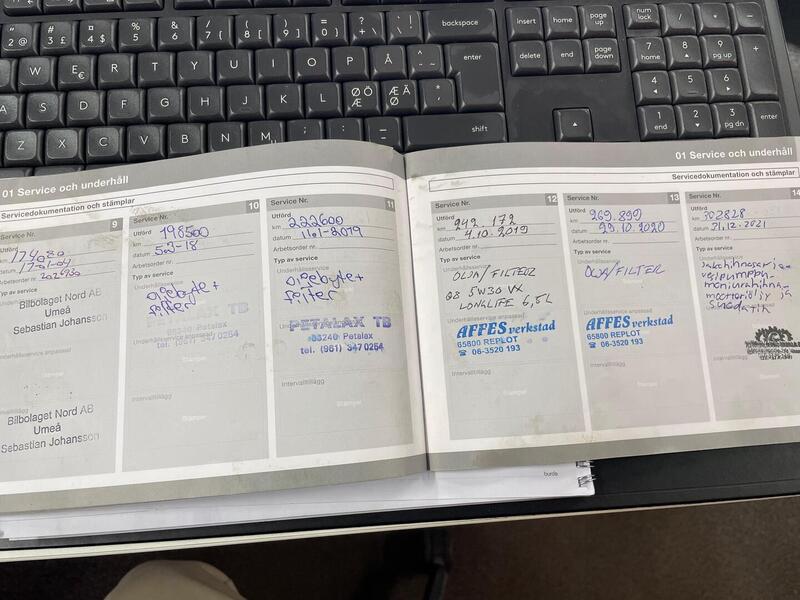 01 Service och underhåll
Servicedokumentation och stämplar
9
km 174080
datum 17-01-04
Arbetsorder nr.
Typ av service
Bilbolaget Nord AB
Umeå
Sebastian Johansson
Bilbolaget Nord AB
Umeå
Sebastian Johansson
Service Nr. 10
Utförd
km 198500
datum 5.3-18
Arbetsorder nr.
Typ av service
Oljebyte +
filter
66240 Petalax
Underhållsservice anpassad
tel. (961) 347 0254
Intervalltillägg
Stämpel
Service Nr. 11
Utförd
km 222600
datum
Arbetsorder nr.
Typ av service
Oljebyte +
filter
PETALAX TB
66240 Petalax
Underhållsservice anpassad
tel. (961) 347 0254
Intervalltillägg
Stämpel
01 Service och underhåll
Servicedokumentation och stämplar
Service Nr. 12
Utförd
km 242.172
datum 4.10.2019
Arbetsorder nr.
Typ av service
Underhållsservice
OLJA/FILTER
Q8 5W30 VX
LONGLIFE 6,5L
Underhållsservice anpassad
AFFES verkstad
65800 REPLOT
☎ 06-3520 193
Intervalltillägg
Stämpel
Service Nr. 13
Utförd
km 269.899
datum 29.10.2020
Arbetsorder nr.
Typ av service
Underhållsservice
OLJA/FILTER
Underhållsservice anpassad
AFFES verkstad
65800 REPLOT
☎ 06-3520 193
Intervalltillägg
Stämpel
Service Nr. 14
Utförd
km 302828
datum 21.12.2021
Arbetsorder nr.
Typ av service
jakohihnasarja
vesipumppu
moniurahihna
moottoriöljy ja
suodatin
burda
backspace
enter
shift
insert
home
page up
delete
end
page down
num lock
7 home
8
9 pg up
4
5
6
1 end
2
3 pg dn
enter
W E R T Y U I O P Å
A S D F G H J K L ØÖ ÆÄ
Z X C V B N M